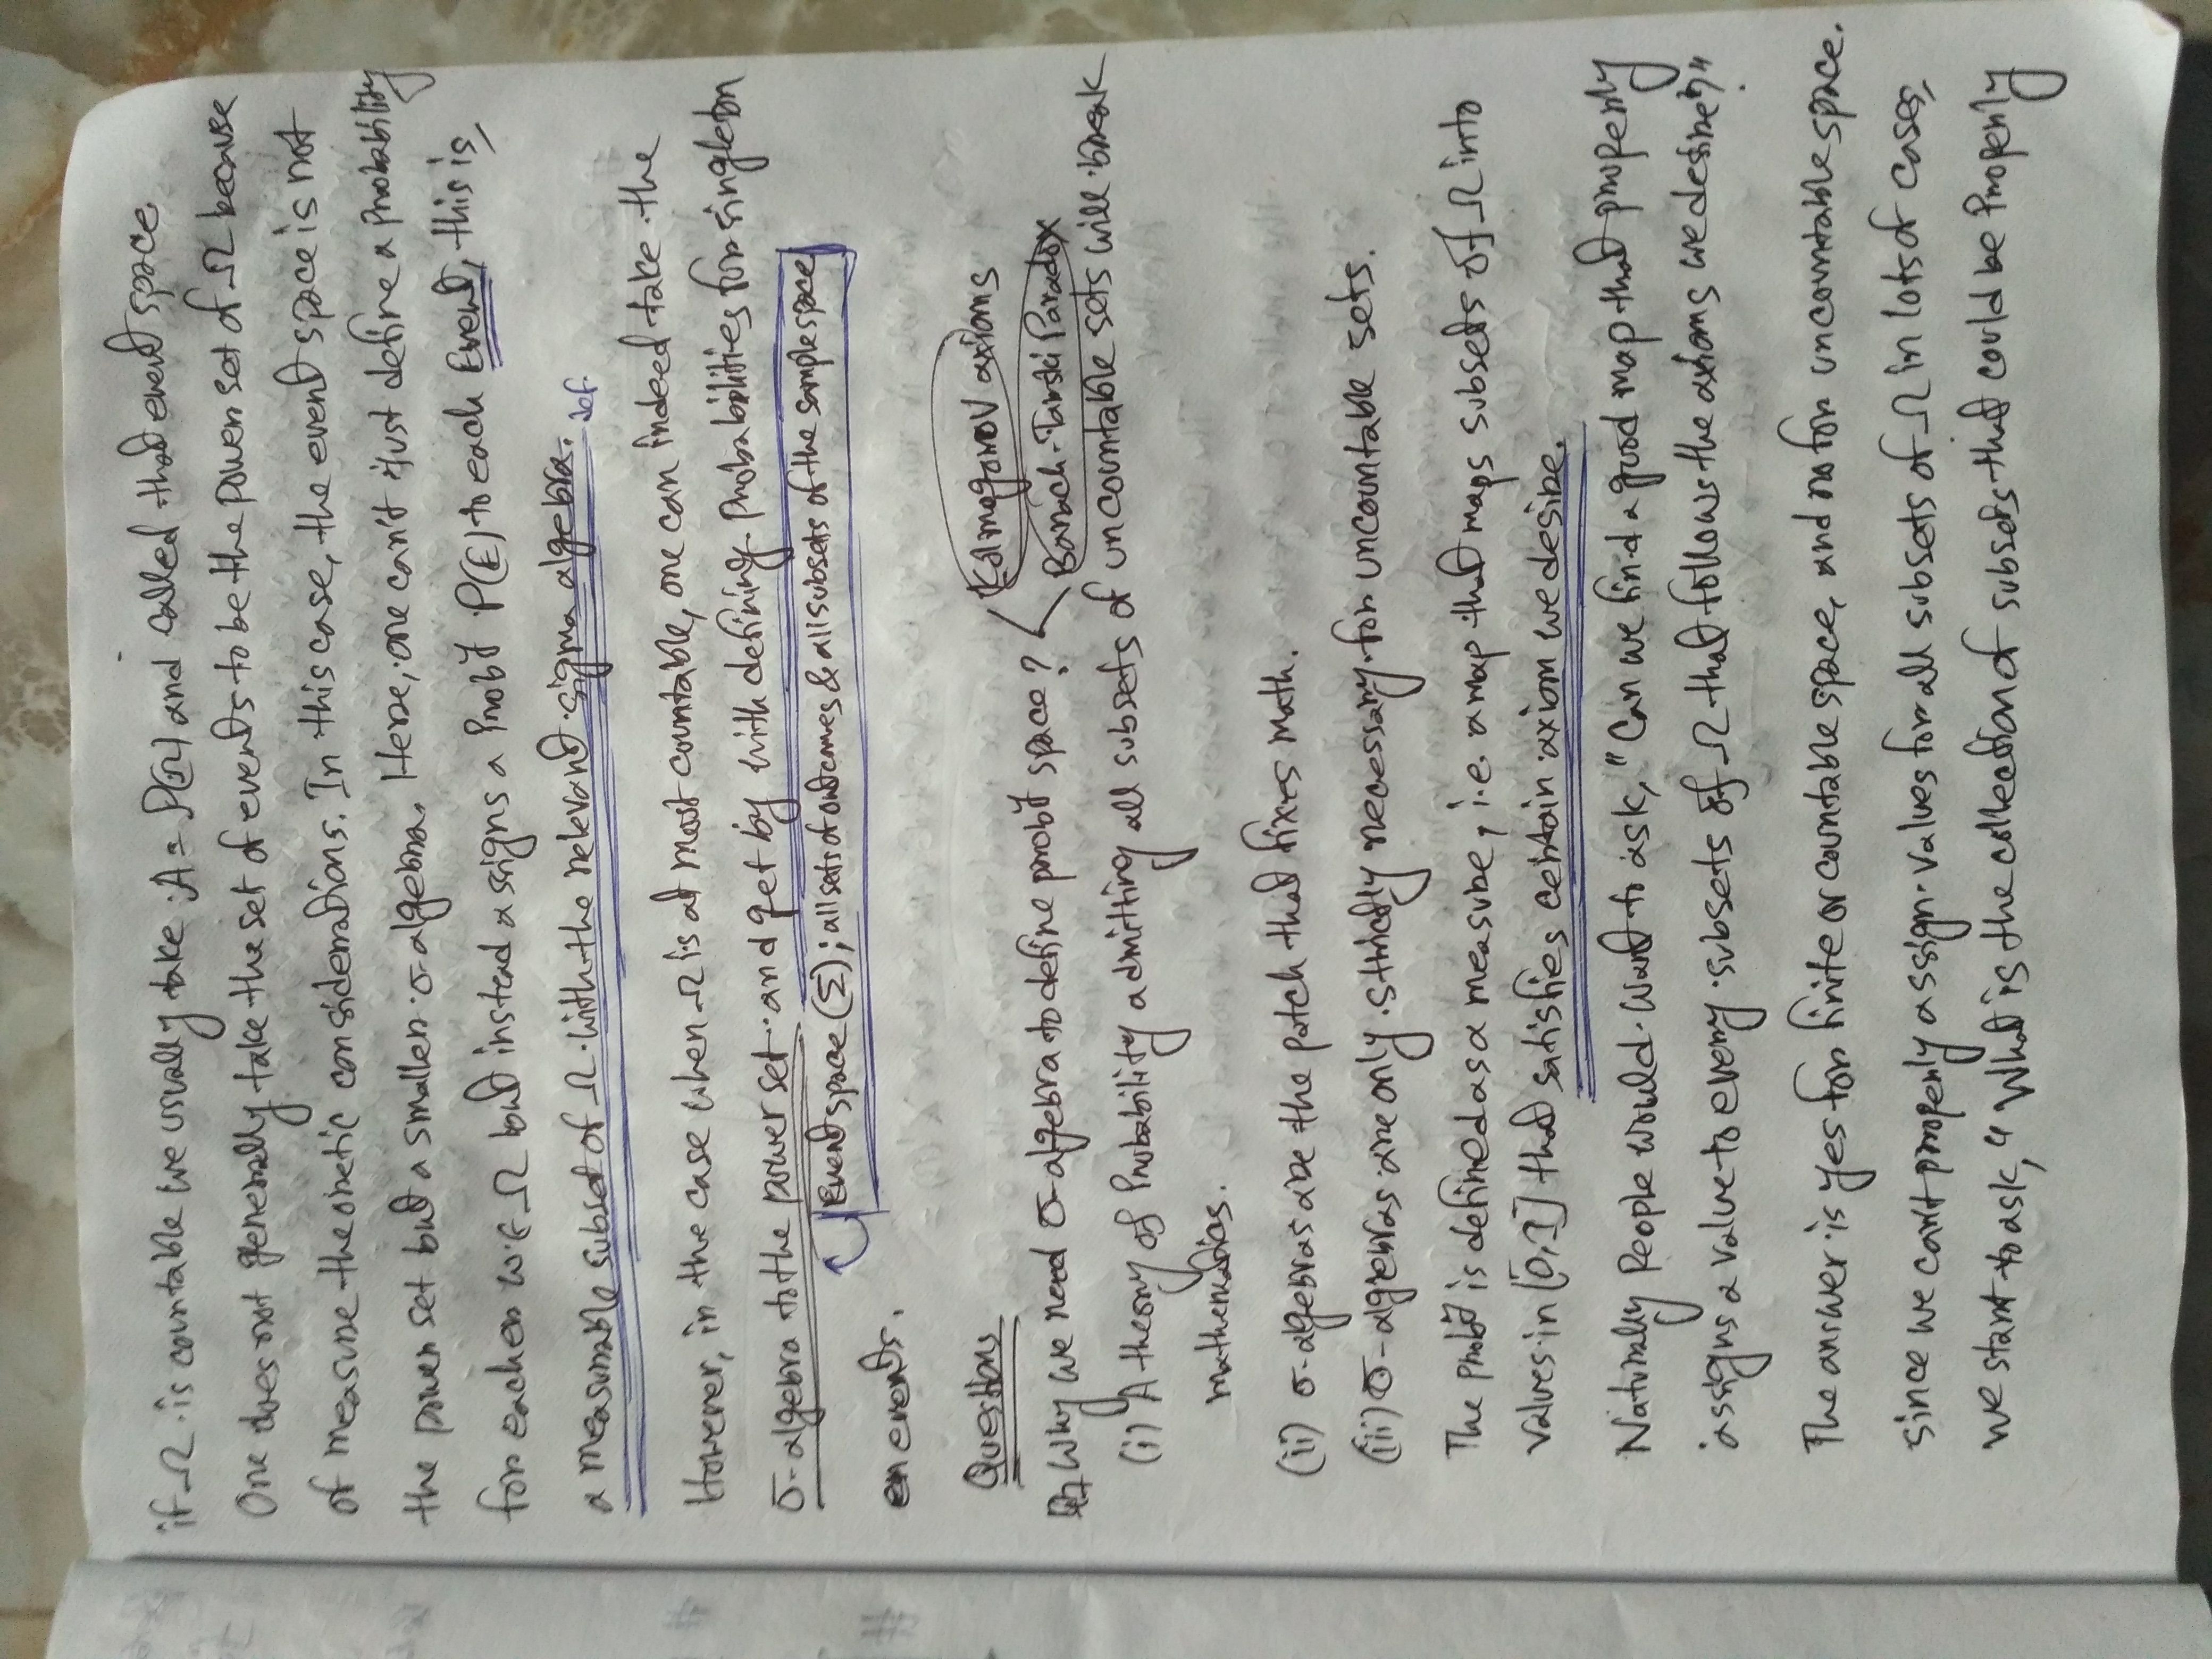 if Ω is countable we usually take A = P(Ω) and called that event space
One does not generally take the set of events to be the power set of Ω because
of measure theoretic considerations. In this case, the event space is not
the power set but a smaller σ-algebra. Here, one can't just define a probability
for each ω ∈ Ω but instead assigns a Proby P(E) to each Event, this is,
a measurable subset of Ω with the relevant sigma algebra. def.
However, in the case when Ω is at most countable, one can indeed take the
σ-algebra to the power set and get by with defining Probabilities for singleton
Event space (Σ); all sets of outcomes & all subsets of the sample space
events.
Questions
Kolmogorov axioms
Why we need σ-algebra to define proby space?
Banach-Tarski Paradox
(i) A theory of Probability admitting all subsets of uncountable sets will break
mathematics.
(ii) σ-algebras are the patch that fixes math.
(iii) σ-algebras are only strictly necessary for uncountable sets.
The proby is defined as a measure, i.e. a map that maps subsets of Ω into
values in [0,1] that satisfies certain axiom we desire.
Naturally People would want to ask, "Can we find a good map that properly
assigns a value to every subsets of Ω that follows the axioms we desire?"
The answer is yes for finite or countable space, and no for uncountable space.
since we can't properly assign values for all subsets of Ω in lots of cases,
we start to ask, "What is the collection of subsets that could be Properly